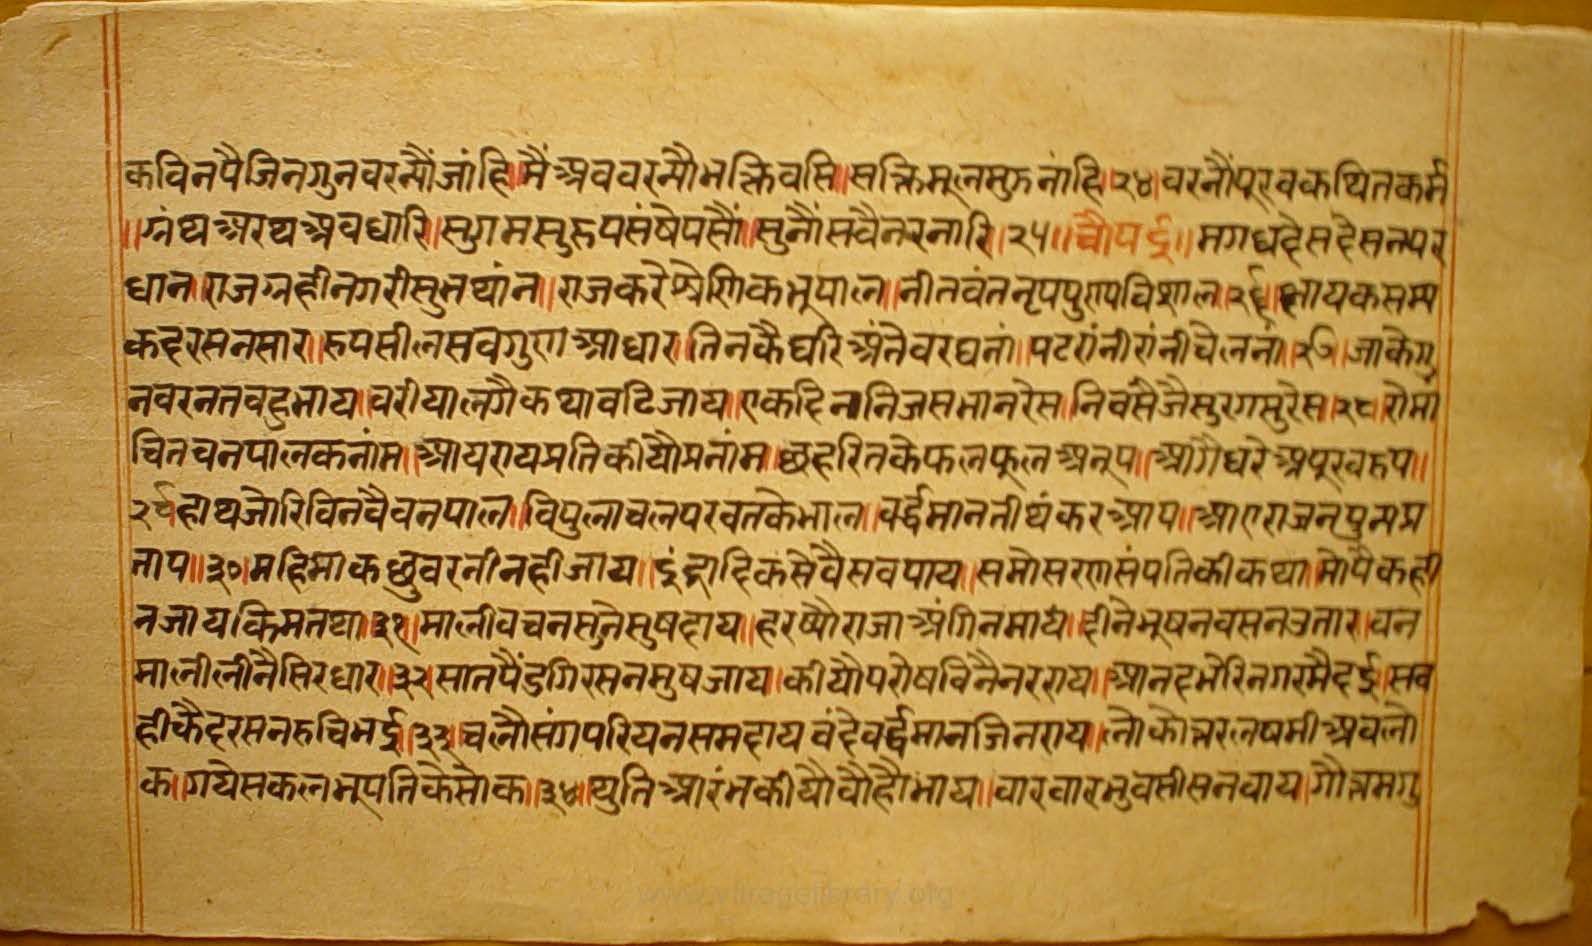 कविनपैजिनगुनवरन्यौंजांहि।मैंअववरन्यौभक्तिवसि॥सक्तिमूलमुरुनांहि।२४।वरनौंपूरवकथितकर्म
॥ग्रंथअरथअवधारि।सुगमसुरुपसंषेपसौं॥सुनौंसवैनरनारि।२५।।चौपई।।मगधदेसदेसनपर
धान।राजग्रहीनगरीसुभथांन॥राजकरेश्रेणिकभूपाल।नीतवंतनृपपुण्यविशाल।२६।क्षायकसम्य
कदरसनसार।रुपसीलसवगुणआधार।तिनकैघरिअंतेवरघनां।पटरांनीरांनीचेलनां।२७।जाकेगु
नवरनतवहुभाय।वरीयालगैकथावढिजाय।एकदिनानिजसभानरेस।निवसैजैसुरगसुरेस।२८।रोमां
चितवनपालकनांम।आयरायप्रतिकीयौप्रनांम।छहरितकेफलफूलअनूप।आगैंधरेअपूरवरुप॥
२९हाथजोरिविनवैवनपाल।विपुलाचलपरवतकेभाल।वर्द्धमानतीर्थंकरआप।आएराजनपुन्यप्र
ताप॥३०।महिमाकछुवरनीनहीजाय।इंद्रादिकसेवैसवपाय।समोसरणसंपतिकीकथा।मोपैकही
नजायकिमतथा।३१।मालीवचनसुनेसुषदाय।हरष्यौराजाअंगिनमाय।दीनेभूषनवसनउतार।वन
मालीलीनैसिरधार।३२।सातपैंडगिरसनमुषजाय।कीयौपरोषविनैनरराय।आनदभेरिनगरमैदई।सव
हीकैदरसनरुचिभई।३३।चलौसंगपरियनसमदायवंदेवर्द्धमानजिनराय।लोकोत्तरलषमीअवलो
क।गयेसकलभूपतिकेसोक।३४।थुतिआरंभकीयौवौहौभाय।वारवारभुवसीसनवाय।गौत्तमगु
www.vitragelibrary.org